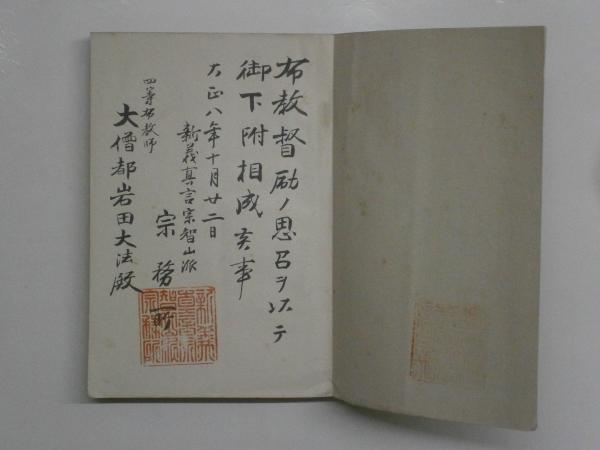 布教督励ノ思召ヲ以テ
御下附相成候事
大正八年十月廿二日
新義真言宗智山派
宗務所
四等布教師
大僧都岩田大法殿